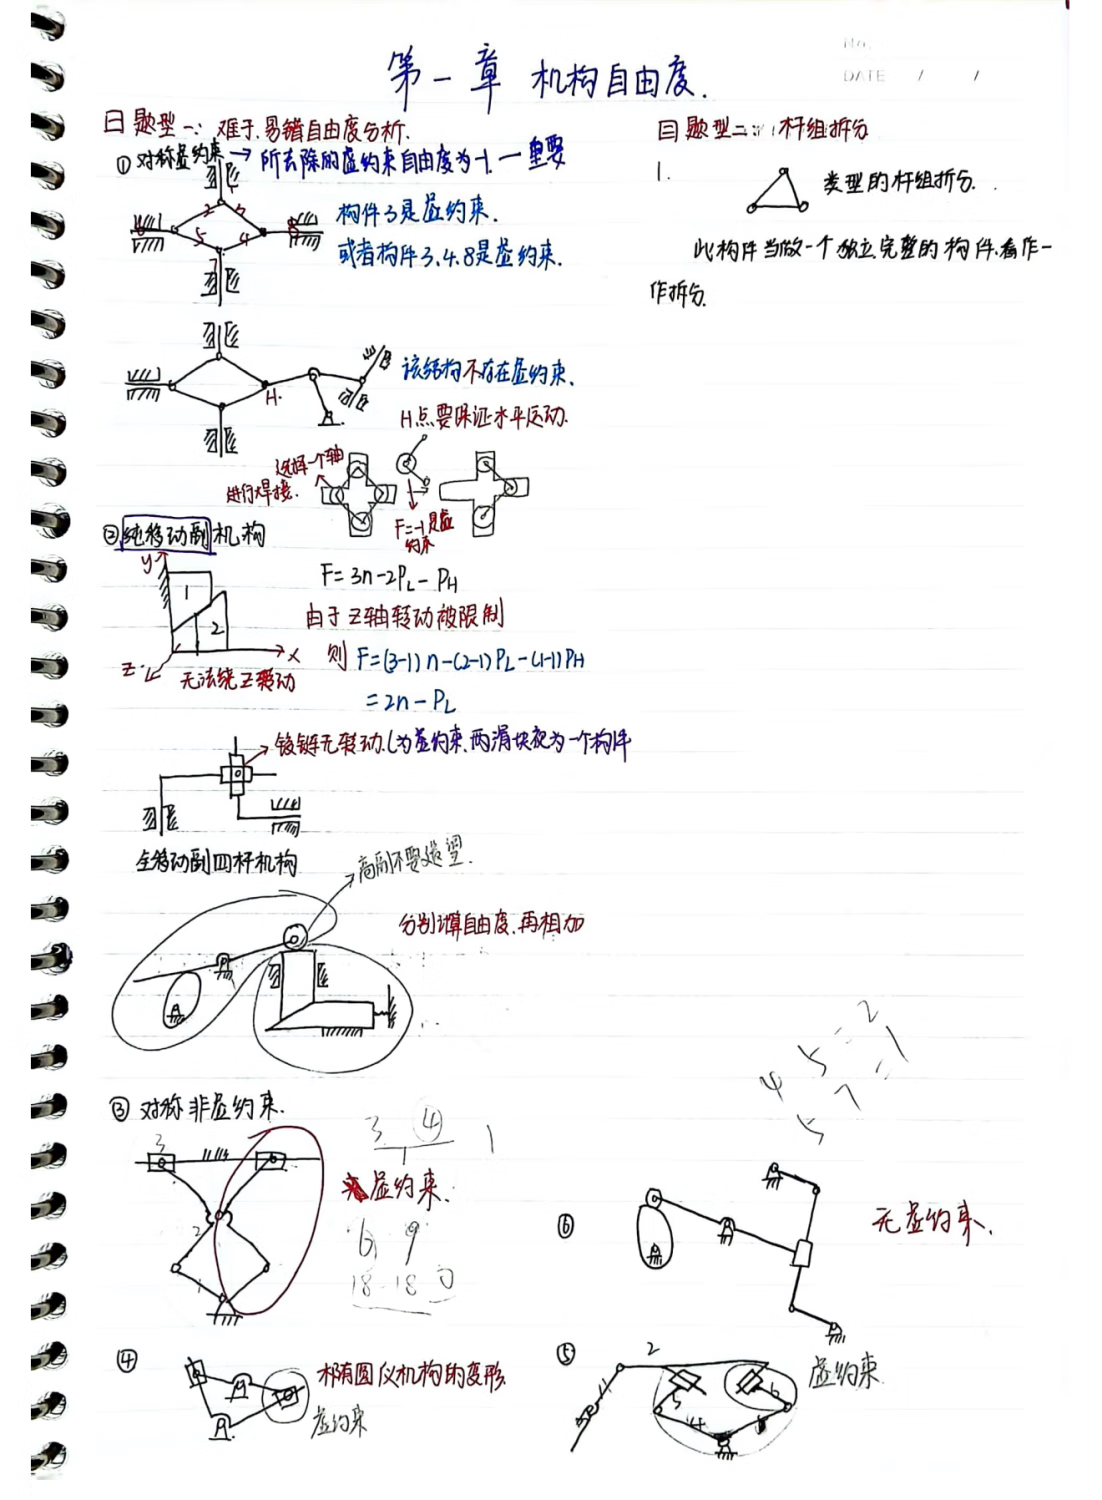 No.
DATE / /
第一章 机构自由度.
曰题型一: 难于.易错自由度分析.
①对称虚约束→所去除的虚约束自由度为-1.一重要
2 3
5 4
构件3是虚约束.
或者构件3.4.8是虚约束.
该结构不存在虚约束.
H.
H点要保证水平运动.
选择一个轴
进行焊接.
F=-1是虚
约束
②纯移动副机构
y
1
2
x
z
无法绕Z转动
F=3n-2PL-PH
由于Z轴转动被限制
则 F=(3-1)n-(2-1)PL-(1-1)PH
=2n-PL
铰链无转动.(为虚约束.两滑块视为一个构件
全移动副四杆机构
高副不要遗望.
分别计算自由度.再相加
③对称非虚约束.
3
2
1
3 ④ 1
1
虚约束.
6 9
18-18 0
④
椭圆仪机构的变形
虚约束
曰题型二: 杆组拆分
1.
类型的杆组拆分.
此构件当做一个独立完整的构件.看作一
作拆分.
4 5 = 2
5 7 = 1
⑥
无虚约束.
⑤
2
1
5
4
6
虚约束